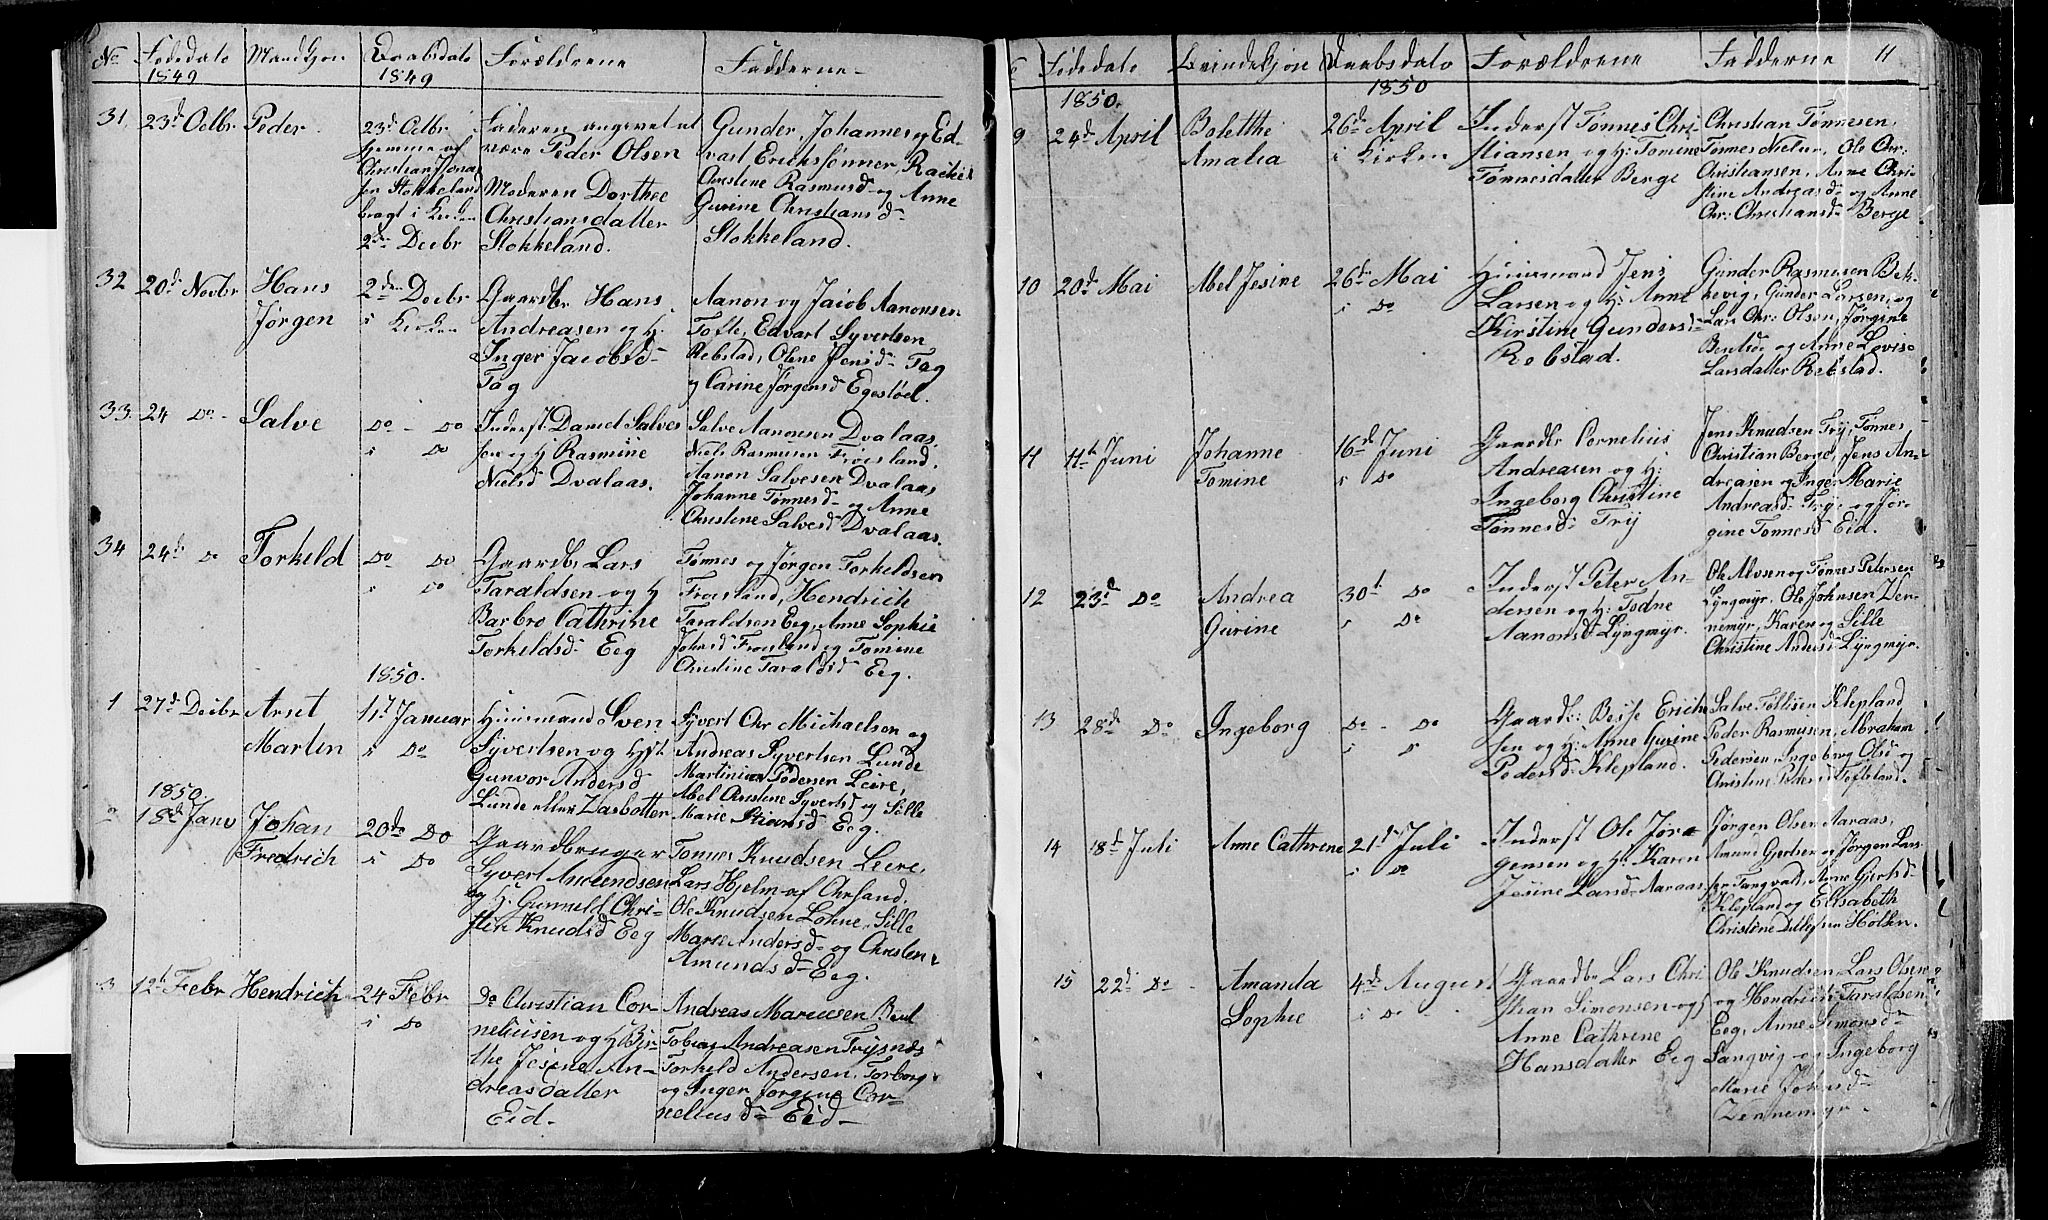 No Fødedato Mandkjøn Daabsdato Forældrene Fadderne
1849 1849
31. 23d Octbr Peder.
23d Octbr
hjemme af
Christian Jonas
sen Stokkeland
bragt i Kirken
2den Decbr
Faderen angivet at
være Peder Olsen
Moderen Dorthee
Christiansdatter
Stokkeland.
Gunder, Johannes og Ed-
vart Erichssønner, Rachel
Christine Rasmusd- og Anne
Gurine Christiansd-
Stokkeland.
32 20d Novbr Hans
Jørgen
2den Decbr
i Kirken
Gaardbr Hans
Andreasen og H.
Inger Jacobsd-
Tag
Aanon og Jacob Aanonsen
Tofte, Edvart Syvertsen
Rebstad, Olene Jensd- Tag
og Carine Jørgensd Egestøel.
33. 24 Do - Salve
Do - Do
i Do
Inderst Daniel Salves
sen og H Rasmine
Nielsd Dvalaas.
Salve Aanonsen Dvalaas,
Niels Rasmusen Frøisland,
Aanon Salvesen Dvalaas
Johanne Tønnesd- og Anne
Christine Salvesd Dvalaas.
34 24d Do Torkeld
Do Do
i Do
Gaardbr Lars
Taraldsen og H
Barbro Cathrine
Torkeldsd- Eeg
Tønnes og Jørgen Torkeldsen
Froesland, Hendrich
Taraldsen Eeg, Anne Sophie
Johnsd Froesland og Tomine
Christine Taraldsd Eeg.
1850.
1 27d Decbr Arnt
Martin
1st Januar
i Do
Huusmand Sven
Syvertsen og Hst
Gunvor Andersd
Lunde eller Aasbotter
Syvert Chr Michaelsen og
Andreas Syvertsen Lunde
Martinius Pedersen Leire,
Abel Christine Syvertsd og Sille
Marie Stiansd Eeg.
1850.
2 18d Janv Johan
Fredrich
20de Do
i Do
Gaardbruger
Syvert Amundsen
og H. Gunnild Chri-
stine Knudsd Eeg
Tønnes Knudsen Leire,
Lars Hjelm af Chrsand,
Ole Knudsen Lohne, Sille
Marie Andersd- og Christene
Amundsd- Eeg.
3 12t Febr Hendrich
24 Febr
i Do
Do Christian Cor-
neliusen og H Bir-
the Jesine An-
dreasdatter
Eid-
Andreas Mariusen
Tobias Andreasen Trysnes
Torkeld Andersen, Torborg
og Inger Jørgine Cor-
neliusd- Eid-
Fødedato Qvindekjøn Daabsdato Forældrene Fadderne 11
1850. 1850
9 24d April Boletthe
Amalia
26de April
i Kirken
Inderst Tønnes Chri-
stiansen og H: Tomine
Tønnesdatter Berge
Christian Tønnesen,
Tønnes Nielsen, Ole Chr:
Christiansen, Anne Chri-
stine Andreasd- og Anne
Chr: Christiansd- Berge
10 20d Mai Abel Jesine
26de Mai
i Do
Huusmand Jens
Larsen og H: Anne
Kirstine Gundersd-
Rebstad.
Gunder Rasmusen Bek-
kevig, Gunder Larsen, og
Lars Chr: Olsen, Jørgine
Bentsd: og Anne Lovise
Larsdatter Rebstad.
11 11te Juni Johanne
Tomine
16d Juni
i Do
Gaardbr Cornelius
Andreasen og H:
Ingeborg Christine
Tønnesd: Try
Jens Knudsen Try, Tønnes
Christian Berge, Jens An-
dreasen og Inger Marie
Andreasd- Try og Jør-
gine Tønnesd Eid.
12 23d Do Andrea
Gurine
30t Do
i Do
Inderst Peter An-
dersen og H: Todne
Aanonsd Lyngmyr.
Ole Alvsen og Tønnes Petersen
Lyngmyr, Ole Johnsen Zen-
nemyr, Karen og Sille
Christine Andersd Lyngmyr.
13 28de Do Ingeborg
Do - Do
i D
Gaardbr: Besse Erich-
sen og H: Anne Gurine
Pedersd: Klepland.
Salve Tellisen Klepland
Peder Rasmusen, Abraham
Pedersen, Ingeborg Olsd og
Christine Pedersd Tofteland.
14 18d Juli Anne Cathrene
21de Juli
i Do
Inderst Ole Jør-
gensen og H: Karen
Jesine Larsd- Aaraas
Jørgen Olsen Aaraas,
Amund Gjertsen og Jørgen Lars-
sen Tangvad, Anne Gjertsd-
Klepland og Elisabeth
Christine Ditlefsen Holten.
15 22d- Do - Amanda
Sophie
4de August
i Do
Gaardbr Lars Chri
stian Simonsen og H
Anne Cathrene
Hansdatter Eeg
Ole Knudsen, Lars Olsen
og Hendrich Taraldsen
Eeg, Anne Simonsd-
Langvig og Ingeborg
Marie Johnsd-
Zennemyr.